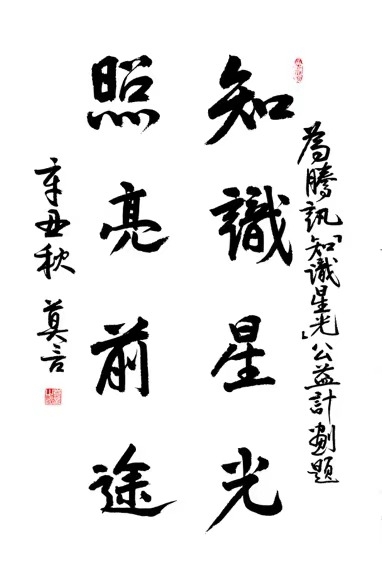 為騰訊「知識星光」公益計劃題
知識星光
照亮前途
辛丑秋 莫言